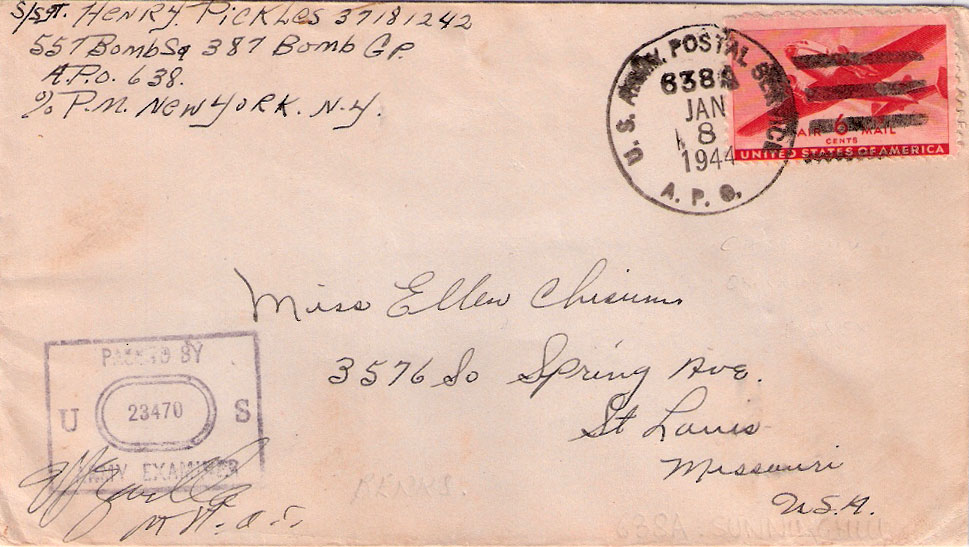 S/Sgt. Henry Pickles 37181242
557 Bomb Sq 387 Bomb GP.
A.P.O. 638.
% P.M. New York. N.Y.
U.S. ARMY POSTAL SERVICE
638
JAN
8
1944
A.P.O.
AIR 6 MAIL
CENTS
UNITED STATES OF AMERICA
Miss Ellen Chisum
3576 So Spring Ave.
St Louis
Missouri
U.S.A.
PASSED BY
U 23470 S
ARMY EXAMINER